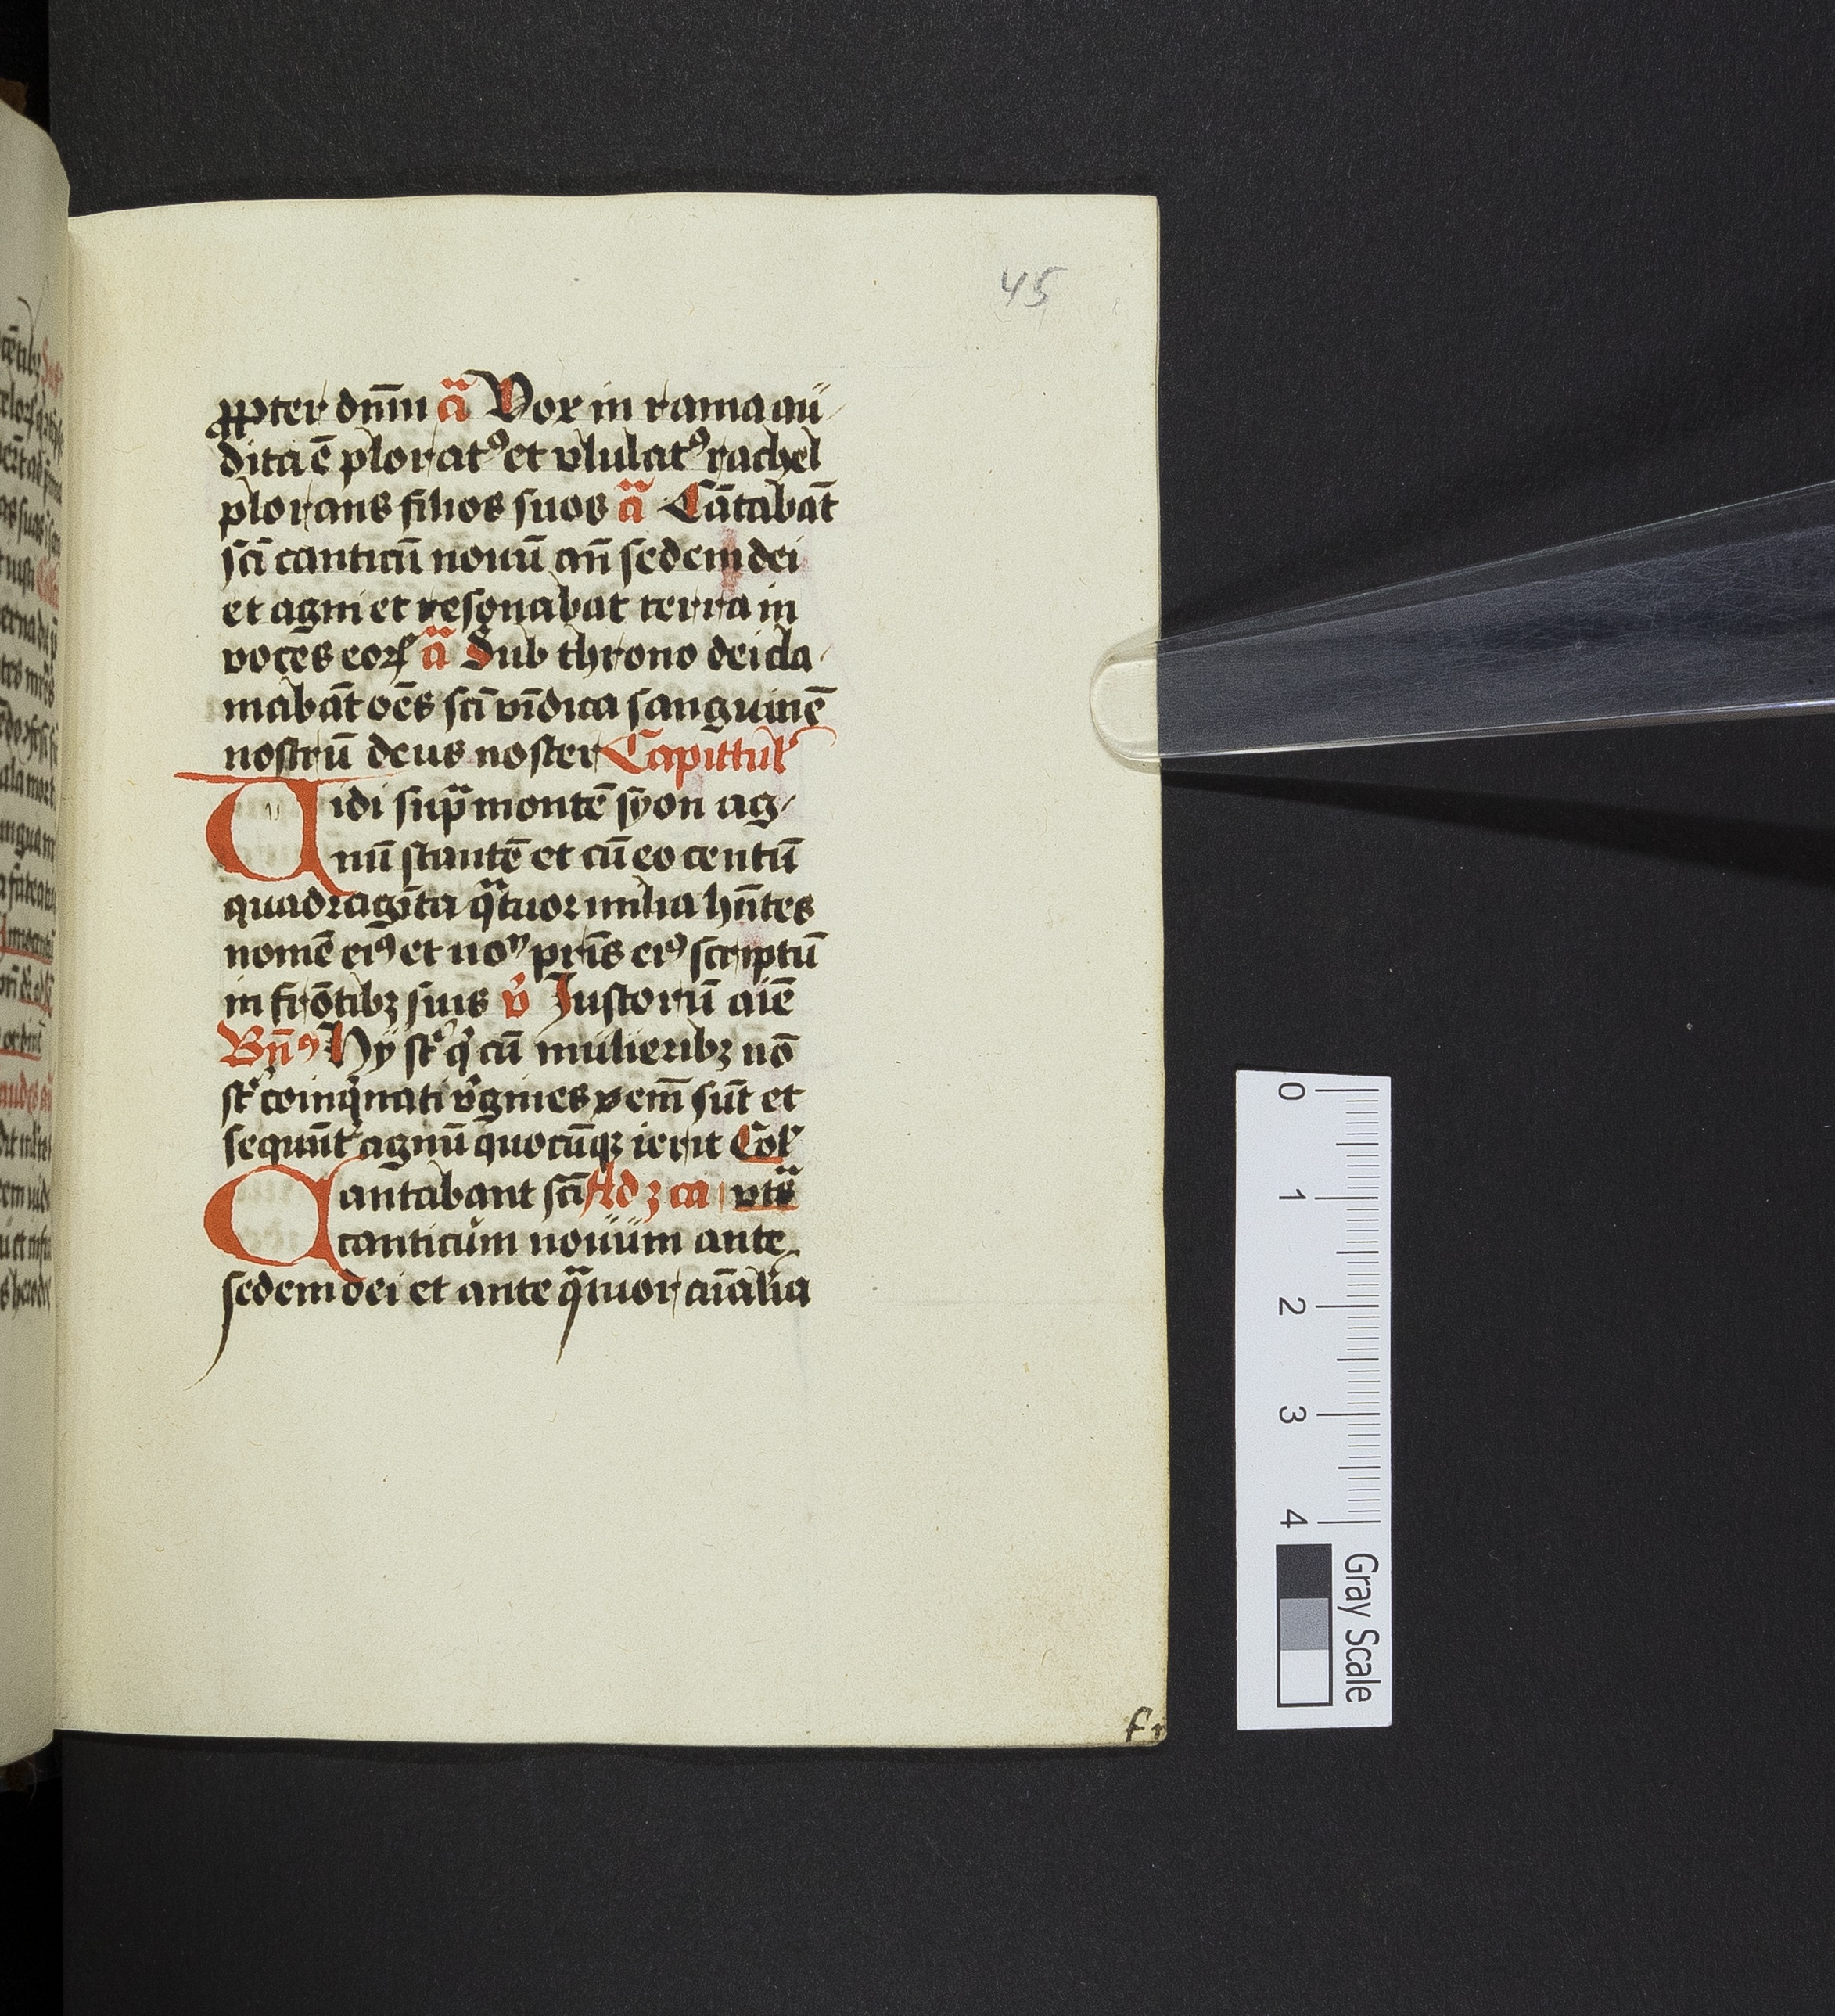 45
ꝓpter dn̄m an̄ Vox in rama au
dita ē ploratꝰ et vlulatꝰ rachel
plorans filios suos an̄ Cātabāt
sci̅ canticū nouū an̄ sedem dei
et agni et resonabat terra in
voces eoꝝ an̄ Sub throno dei cla
mabāt oēs sci̅ vīdica sanguinē
nostrū deus noster Capittul
Vidi supͣ montē syon ag
nū stantē et cū eo centū
quadragīta qͣtuor milia hn̄tes
nomē eiꝰ et noⁿ pris̄ eiꝰ scriptū
in frōtibꝫ suis v̊ Iustorū aīē
Bn̄ꝰ Hy st̄ qͥ cū mulieribꝫ nō
st̄ coinqͥnati vͥgines em̄ sūt et
sequūtͬ agnū quocūqꝫ ierit Col
Cantabant sci̅ Ad ꝫ an̄ vts̄
canticum nouum ante
sedem dei et ante qͣtuor aīalia
0
1
2
3
4
Gray Scale